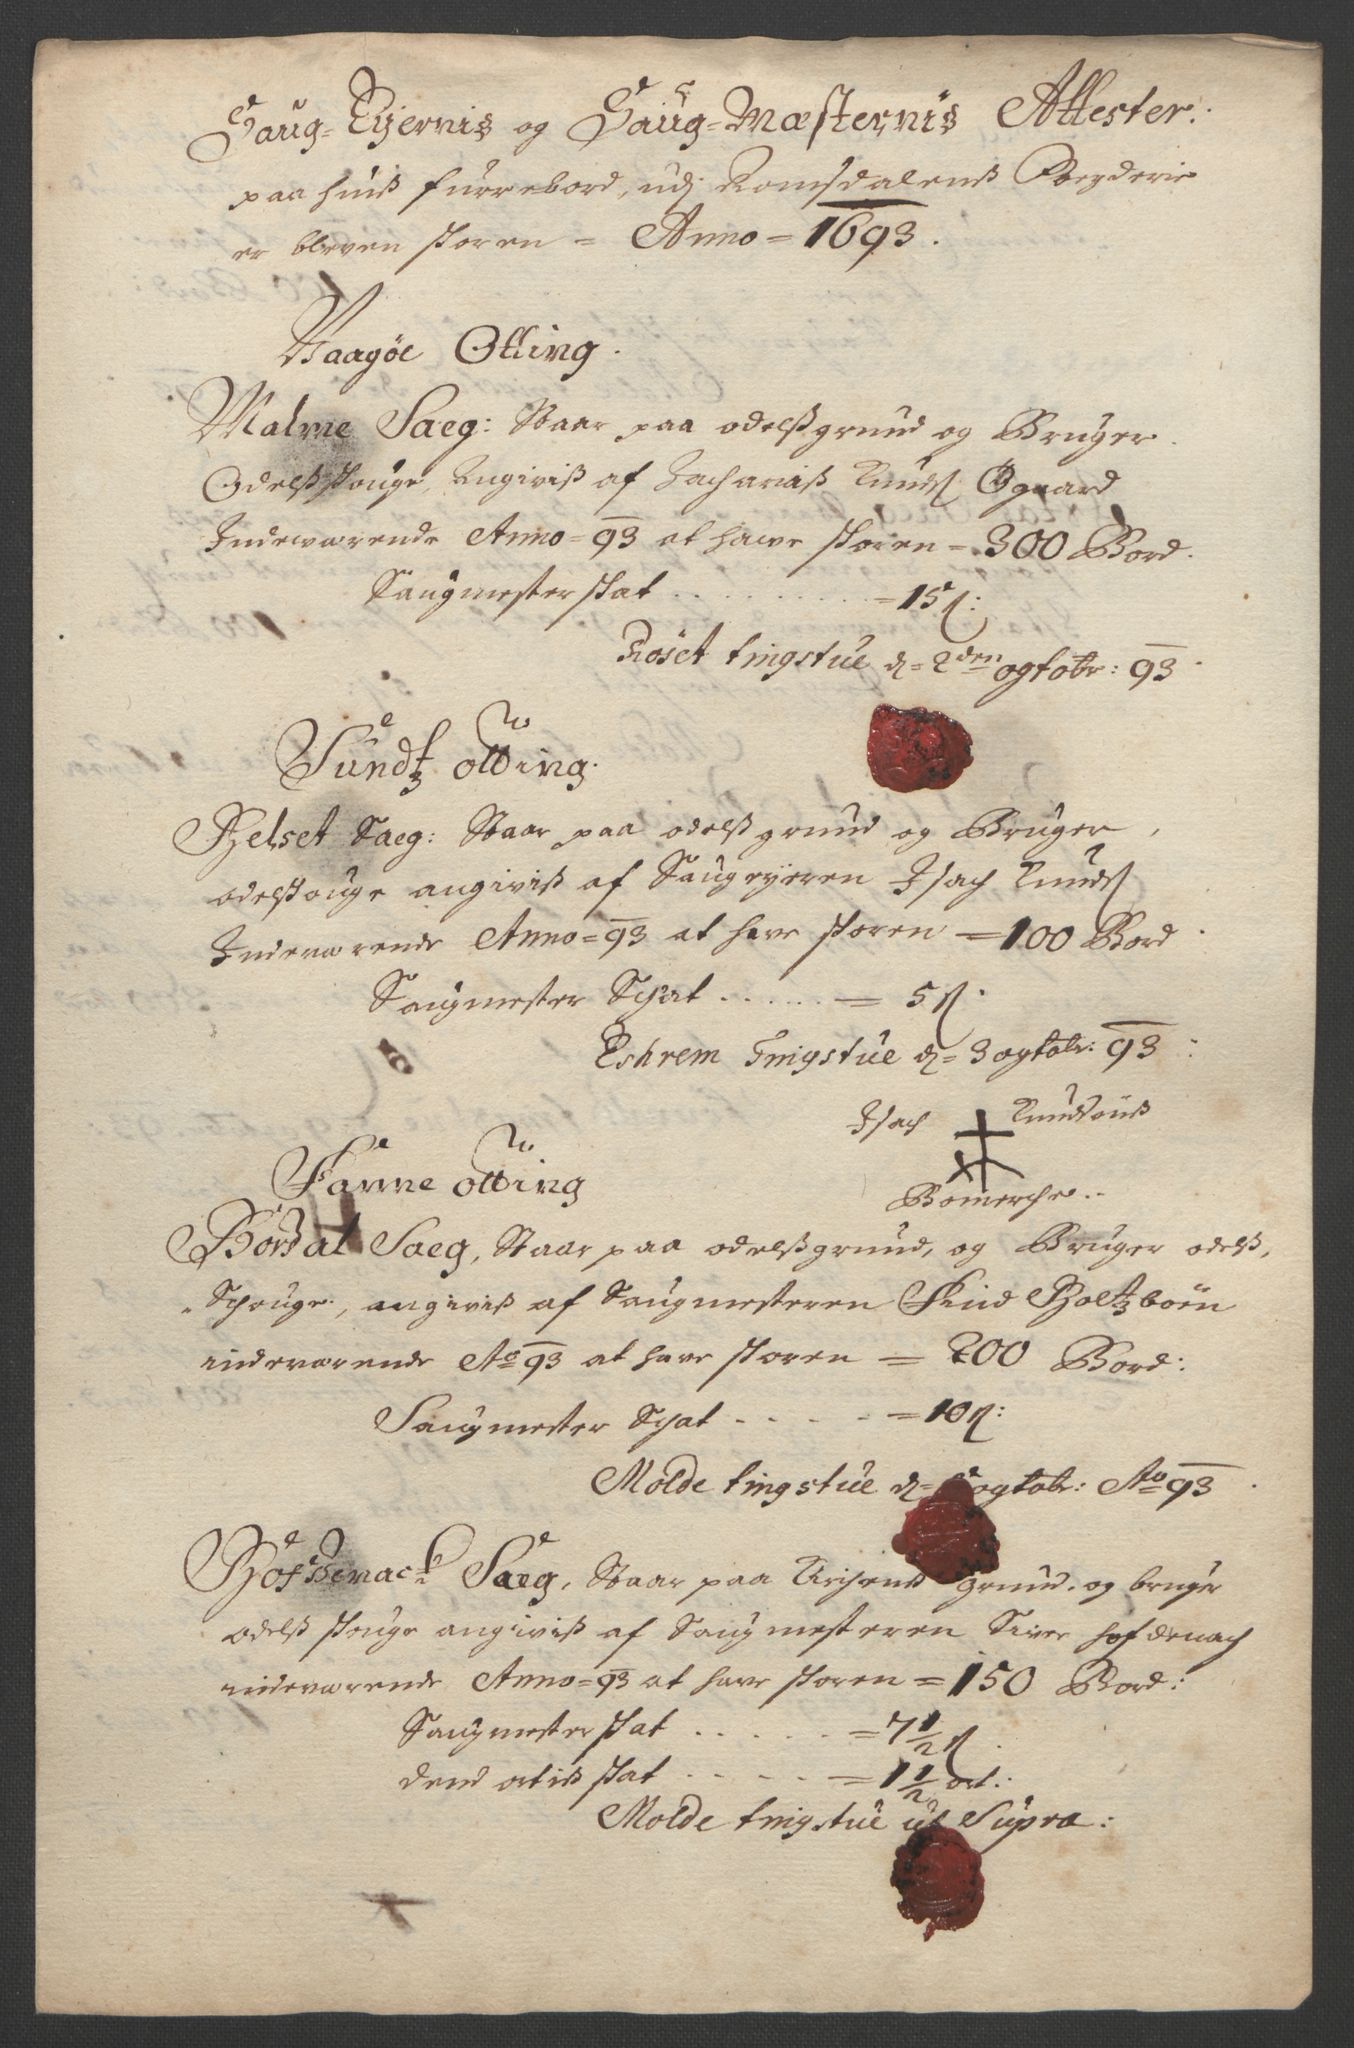 Saug-Eyernis og Saug-Mæsternis Attester:
paa huis furrebord, udj Romsdalens Fogderie
er bleven skoren = Anno = 1693.
Waagöe Otting.
Malme Saeg: Staar paa odelss grund og Bruger
Odelss skouge, Angiviss af Zachariass Knuds Øgaard
Indewærende Anno = 93 at hawe skoren = 300 Bord.
Saugmester skat . . . . . . . . = 15
Röset tingstue d= 2den ogtobr: 93
Sundtz otting.
Helset Saeg: Staar paa odelss grund og Bruger,
odelskouge angiviss af Saugeyeren Isach Knuds
Indeværende Anno = 93 at have skoren = 100 Bord
Saugmester Schat . . . . . = 5
Eshrem Tingstue d= 3 ogtobr: 93:
Isach Knudsöns
Bomerche..
Fanne otting
Bördal Saeg, Staar paa odelss grund, og Bruger odelss,
Schouge, angiviss af Saugmesteren Find Holtzböen
indeværende Ao 93 at have skoren = 200 Bord:
Saugmester Schat - - - - = 10
Molde tingstue d= ogtobr: Ao 93
Höfdenach Saeg, Staar paa Kirchens grund, og bruger
odelss skouge angiviss af Saugmesteren Siver hofdenach
indeværende Anno = 93 at have skoren = 150 Bord:
Saugmester skat . . . . . = 7 1/2
dend skat . . . . = 1 1/2 ort:
Molde tingstue ut Supra: